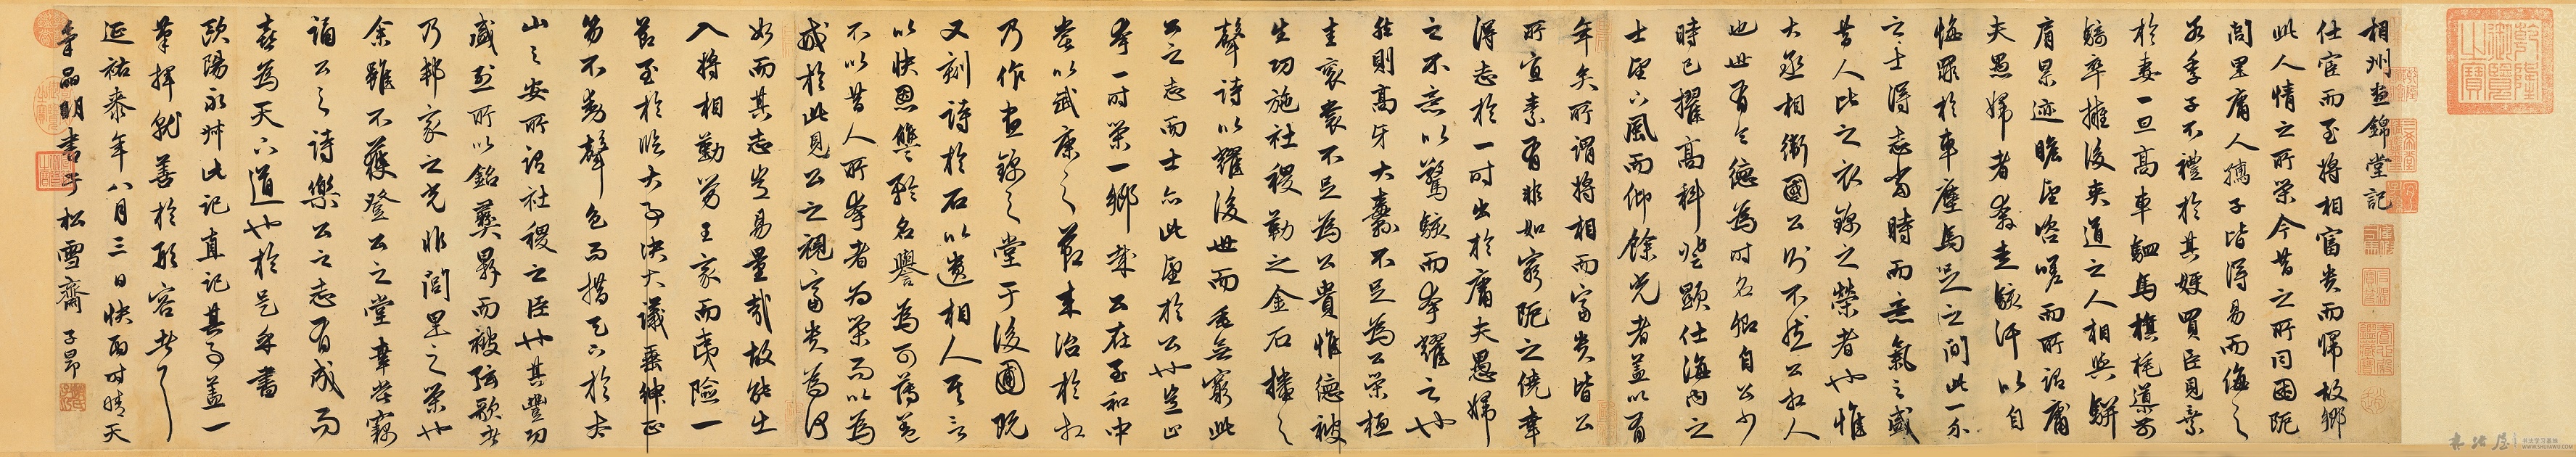 相州晝錦堂記
仕宦而至將相富貴而歸故鄉
此人情之所榮今昔之所同困阨
閭里庸人孺子皆得易而侮之
若季子不禮於其嫂買臣見棄
於妻一旦高車駟馬旗旄導前
騎卒擁後夾道之人相與駢
肩累迹瞻望咨嗟而所謂庸
夫愚婦者奔走駭汗以自
悔罪於車塵馬足之間此一介
之士得志當時而意氣之盛
昔人比之衣錦之榮者也惟
大丞相衛國公則不然公相人
也世有令德為時名卿自公少
時已擢高科登顯仕海內之
士望下風而仰餘光者蓋以有
年矣所謂將相而富貴皆公
所宜素有非如窮阨之僥幸
得志於一時出於庸夫愚婦
之不意以驚駭而夸耀之也
然則高牙大纛不足為公榮桓
圭袞裳不足為公貴惟德被
生功施社稷勒之金石播之
聲詩以耀後世而垂無窮此
公之志而士亦此望於公也豈止
夸一時榮一鄉哉公在至和中
嘗以武康之節來治於相
乃作晝錦之堂于後圃既
又刻詩於石以遺相人其言
以快恩讎矜名譽為可薄蓋
不以昔人所夸者為榮而以為
戒於此見公之視富貴為何
如而其志豈易量哉故能出
入將相勤勞王家而夷險一
節至於臨大事決大議垂紳正
笏不動聲色而措天下於泰
山之安所謂社稷之臣也其豐功
盛烈所以銘彝鼎而被弦歌者
乃邦家之光非閭里之榮也
余雖不獲登公之堂幸嘗竊
誦公之詩樂公之志有成而
喜為天下道也於是乎書
歐陽永叔此記真記其事蓋一
筆揮就善於形容者
延祐泰年八月三日快雨時晴天
氣晶明書于松雪齋 子昂